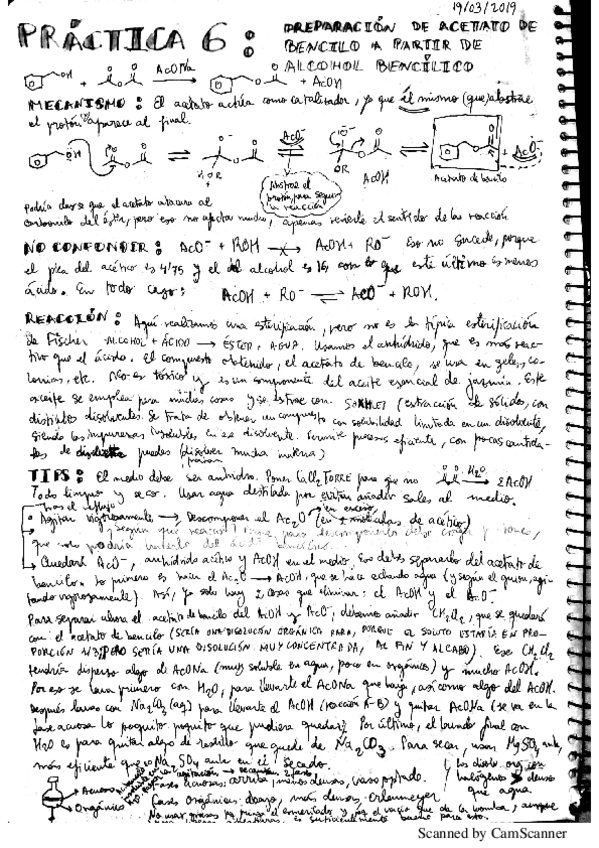 19/03/2019
PRÁCTICA 6: PREPARACIÓN DE ACETATO DE
BENCILO A PARTIR DE
ALCOHOL BENCÍLICO
OH + AcONa + AcOH
MECANISMO: El acetato actúa como catalizador, ya que él mismo (que) abstrae
el protón aparece al final.
AcO⁻
Abstrae el
protón para seguir
la reacción
AcOH
Acetato de bencilo
+ AcO⁻
Podría darse que el acetato atacara al
carbonilo del éster, pero eso no afecta mucho, apenas revierte el sentido de la reacción
NO CONFUNDIR: AcO⁻ + ROH AcOH + RO⁻ Eso no sucede, porque
el pKa del acético es 4'75 y el del alcohol es 16, con lo que este último es menos
ácido. En todo caso: AcOH + RO⁻ ⇌ AcO⁻ + ROH.
REACCIÓN: Aquí realizamos una esterificación, pero no es la típica esterificación
de Fischer ALCOHOL + ÁCIDO → ÉSTER + AGUA. Usamos el anhídrido, que es más reac-
tivo que el ácido. El compuesto obtenido, el acetato de bencilo, se usa en geles, co-
lonias, etc. No es tóxico y es un componente del aceite esencial de jazmín. Este
aceite se emplea para muchas cosas y se extrae con SOXHLET (extracción de sólidos, con
distintos disolventes. Se trata de obtener un compuesto con solubilidad limitada en un disolvente,
siendo las impurezas insolubles en ese disolvente. Permite proceso eficiente, con pocas cantida-
des de puedes disolver mucha materia)
TIPS: El medio debe ser anhidro. Poner CaCl₂ TORRE para que no H₂O 2AcOH
Todo limpio y seco. Usar agua destilada por evitar añadir sales al medio.
tras el reflujo
Agitar vigorosamente → Descomponer el Ac₂O en exceso (en 2 moléculas de acético)
Quedará AcO⁻, anhídrido acético y AcOH en el medio. Eso debes separarlo del acetato de
bencilo. Lo primero es hacer el Ac₂O → AcOH, que se hace echando agua (y según el guion, agi-
tando vigorosamente). Así, ya solo hay 2 cosas que eliminar: el AcOH y el AcO⁻.
Para separar ahora el acetato de bencilo del AcOH y AcO⁻, debemos añadir CH₂Cl₂, que se quedará
con el acetato de bencilo (SERÍA UNA DISOLUCIÓN ORGÁNICA PARA, PORQUE EL SOLUTO ESTARÍA EN PRO-
PORCIÓN PERO SERÍA UNA DISOLUCIÓN MUY CONCENTRADA, AL FIN Y AL CABO). Ese CH₂Cl₂
tendría disperso algo de AcONa (muy soluble en agua, poco en orgánicos) y mucho AcOH.
Por eso se lava primero con H₂O, para llevarte el AcONa que haya, así como algo del AcOH.
Después lavas con Na₂CO₃ (aq) para llevarte el AcOH (reacción A-B) y quitar AcONa (se va en la
fase acuosa lo poquito poquito que pudiera quedar). Por último, el lavado final con
H₂O es para quitar algo de residuo que quede de Na₂CO₃. Para secar, usar MgSO₄ anh,
más eficiente que Na₂SO₄ anh en el secado.
Acuosa
Orgánicos
Fases acuosas: arriba, menos densas, vaso pptado.
Fases orgánicas: abajo, más densas, erlenmeyer
Los disolv. org con
halógenos + densos
que agua
Scanned by CamScanner